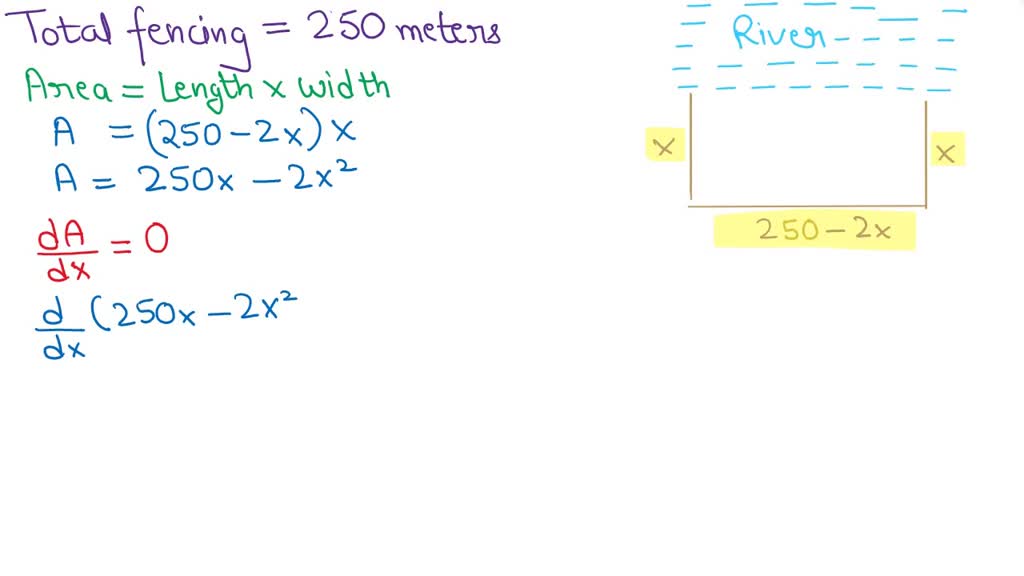 Total fencing = 250 meters
Area = Length x width
A = (250 - 2x) x
A = 250x - 2x²
dA/dx = 0
d/dx (250x - 2x²
River
x
x
250 - 2x